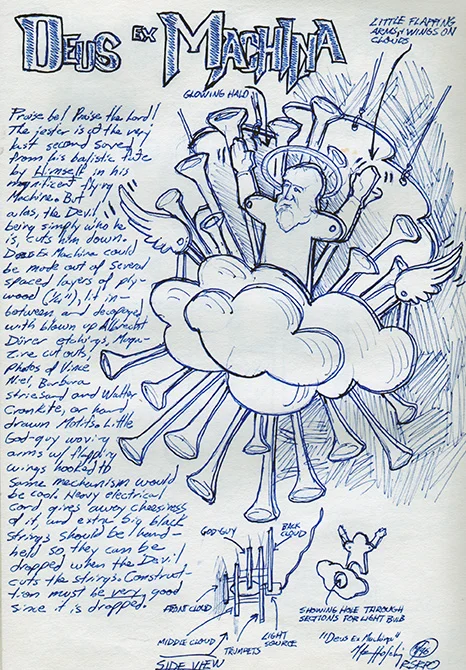 DEUS EX MACHINA
LITTLE FLAPPING
ARMS N' WINGS ON
CLOUDS
GLOWING HALO
Praise be! Praise the Lord!
The jester is at the very
last second saved
from his balistic fate
by Himself in his
magnificent flying
Machine. But
alas, the Devil,
being simply who he
is, cuts him down.
Deus Ex Machina could
be made out of several
spaced layers of ply-
wood (¼"), lit in-
between and decopaged
with blown up Albrecht
Dürer etchings, Maga-
zine cutouts,
photos of Vince
Niel, Barbara
striesand and Walter
Cronkite, or hand
drawn Motifs. Little
God-guy waving
arms w/ flapping
wings hooked to
same mechanism would
be cool. Hevy electrical
cord gives away cheesiness
of it, and extra big black
strings should be hand-
held so they can be
dropped when the Devil
cuts the strings. Construc-
tion must be very good
since it is dropped.
GOD-GUY
BACK
CLOUD
FRONT CLOUD
MIDDLE CLOUD
TRUMPETS
LIGHT
SOURCE
SIDE VIEW
SHOWING HOLE THROUGH
SECTIONS FOR LIGHT BULB
"Deus Ex Machina"